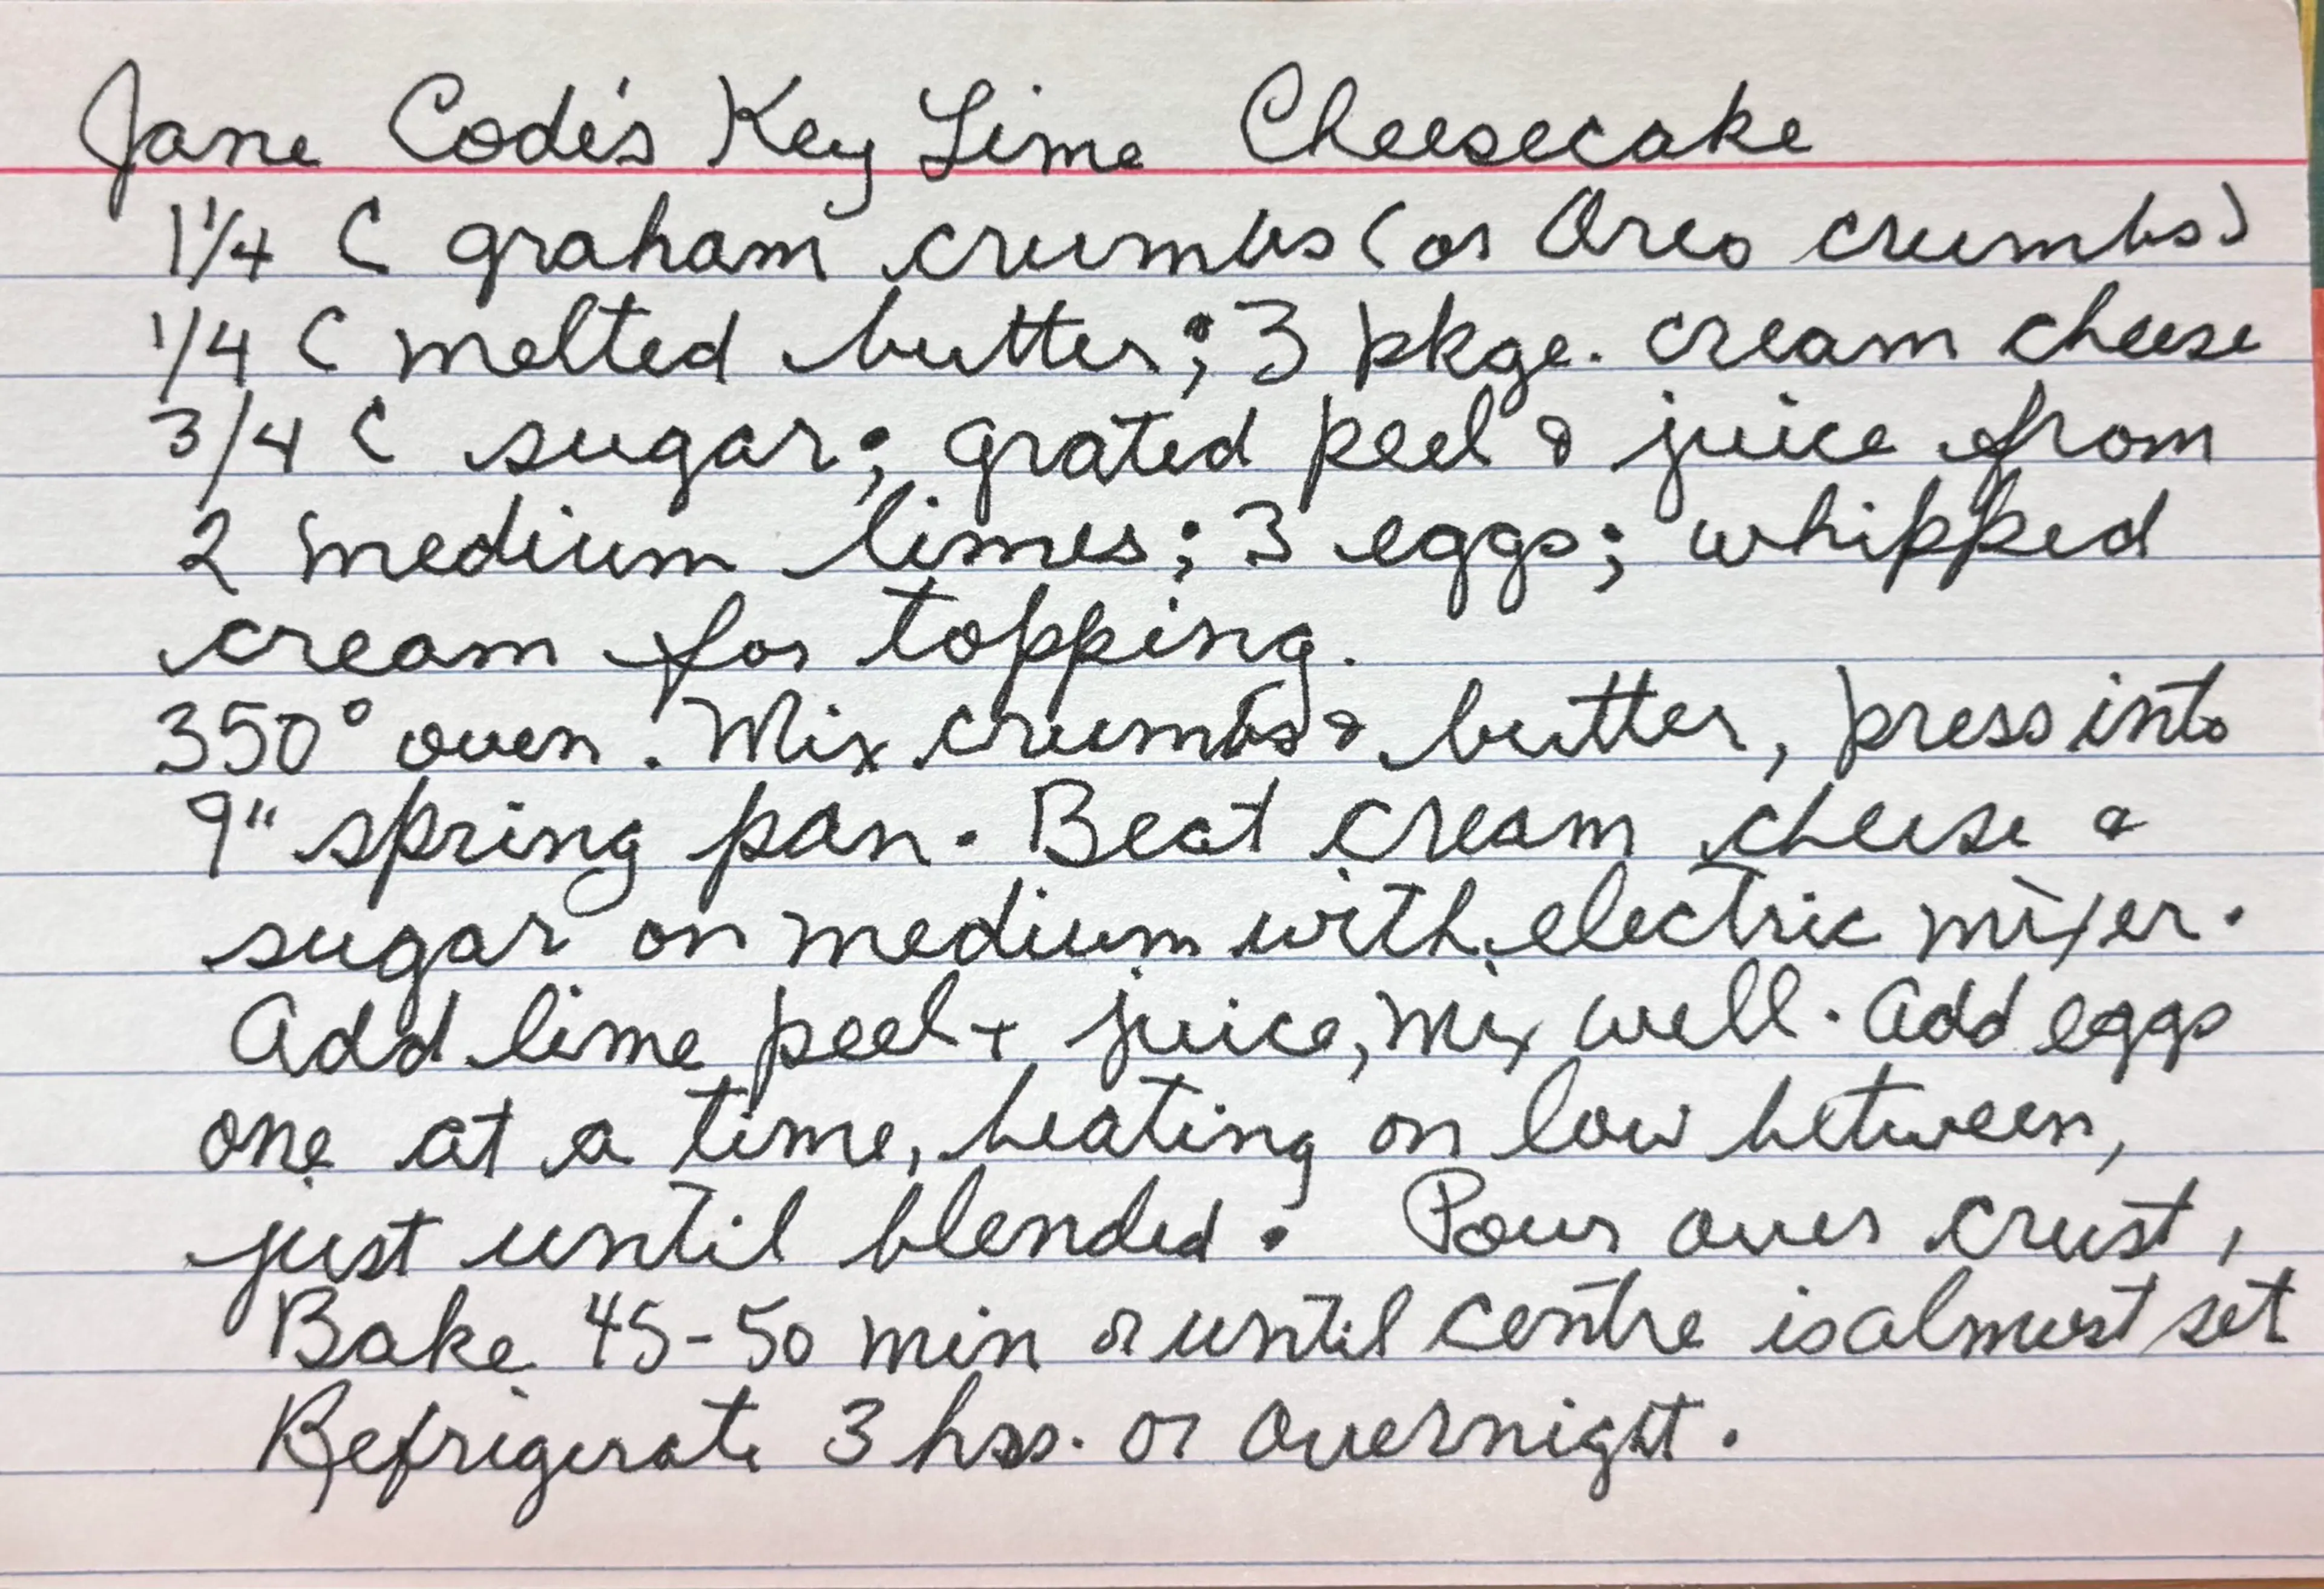 Jane Code's Key Lime Cheesecake
1 1/4 C graham crumbs (or Oreo crumbs)
1/4 C melted butter; 3 pkge. cream cheese
3/4 C sugar; grated peel & juice from
2 medium limes; 3 eggs; whipped
cream for topping.
350° oven. Mix crumbs & butter, press into
9" spring pan. Beat cream cheese &
sugar on medium with electric mixer.
Add lime peel + juice, mix well. Add eggs
one at a time, beating on low between,
just until blended. Pour over crust,
Bake 45-50 min or until centre is almost set
Refrigerate 3 hrs. or overnight.